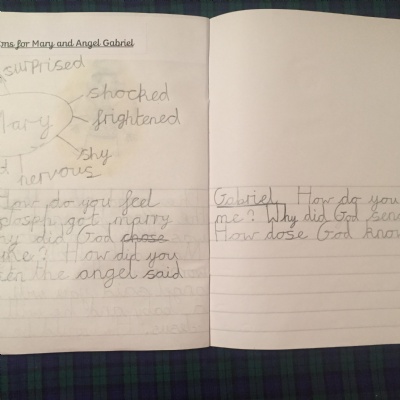 ons for Mary and Angel Gabriel
surprised
shocked
Mary
frightened
shy
nervous
How do you feel
get marry
did God chose
? How did you
the angel said
Gabriel. How do you
me? Why did God sen
How dose God know